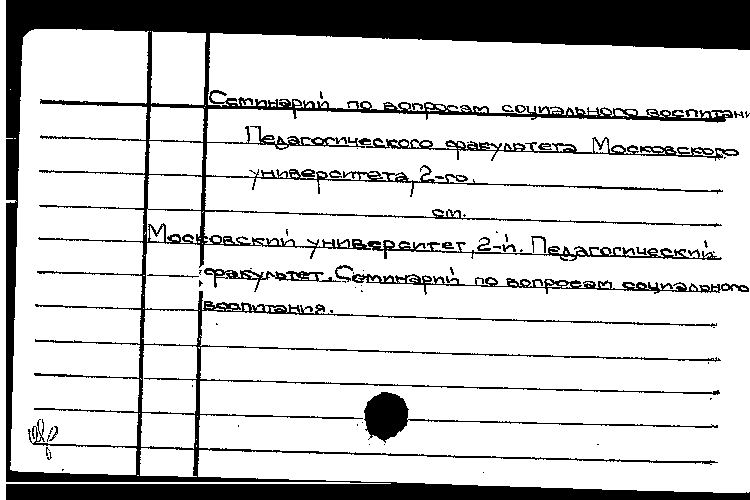 Семинарий по вопросам социального воспитани
Педагогического факультета Московского
университета, 2-го.
см.
Московский университет, 2-й. Педагогический
факультет. Семинарий по вопросам социального
воспитания.